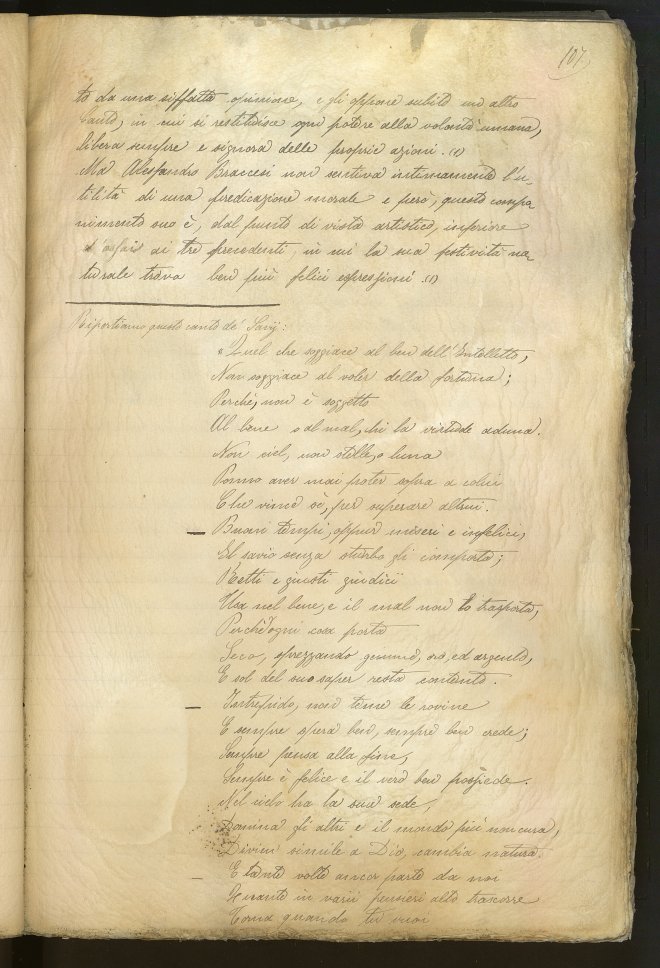 107.
to da una siffatta opinione, egli oppone subito un altro
Canto, in cui si restituisce ogni potere alla volontà umana,
libera sempre e signora delle proprie azioni. (1)
Ma Alessandro Braccesi non sentiva intimamente l'u-
tilità di una predicazione morale e però, questo compo-
nimento suo è, dal punto di vista artistico, inferiore
d'assai ai tre precedenti, in cui la sua festività na-
turale trova ben più felici espressioni. (1)
Riportiamo questo canto de' Savj:
"Quel che soggiace al ben dell'Entelletto,
Non soggiace al voler della fortuna;
Perché, non è soggetto
Al bene o al mal, chi la virtude aduna.
Non ciel, non stelle, o luna
Ponno aver mai poter sopra a colui
Che vince sé, per superare altrui.
— Buoni tempi, oppur miseri e infelici,
El savio senza sturbo gli comporta;
Retti e giusti giudicii
Usa nel bene, e il mal non lo trasporta,
Perch'ogni cosa porta
Seco, sprezzando gemme, oro, ed argento,
E sol del suo saper resta contento.
— Intrepido, non teme le rovine
E sempre spera ben, sempre ben crede;
Sempre pensa alla fine,
Sempre è felice e il vero ben possiede.
Nel cielo ha la sua sede,
Domina gli altri e il mondo più non cura,
Divien simile a Dio, cambia natura.
— E tante volte ancor parte da noi
Quante in varii pensieri alto trascorre
Torna quando tu vuoi